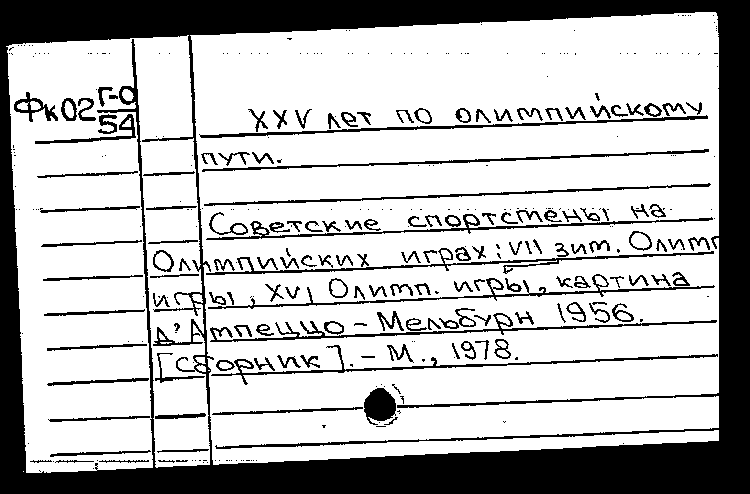 Фк02 Г-0
54
XXV лет по олимпийскому
пути.
Советские спортсмены на
Олимпийских играх: VII зим. Олимп
игры, XVI Олимп. игры, картина
д'Ампеццо - Мельбурн 1956.
[Сборник]. - М., 1978.